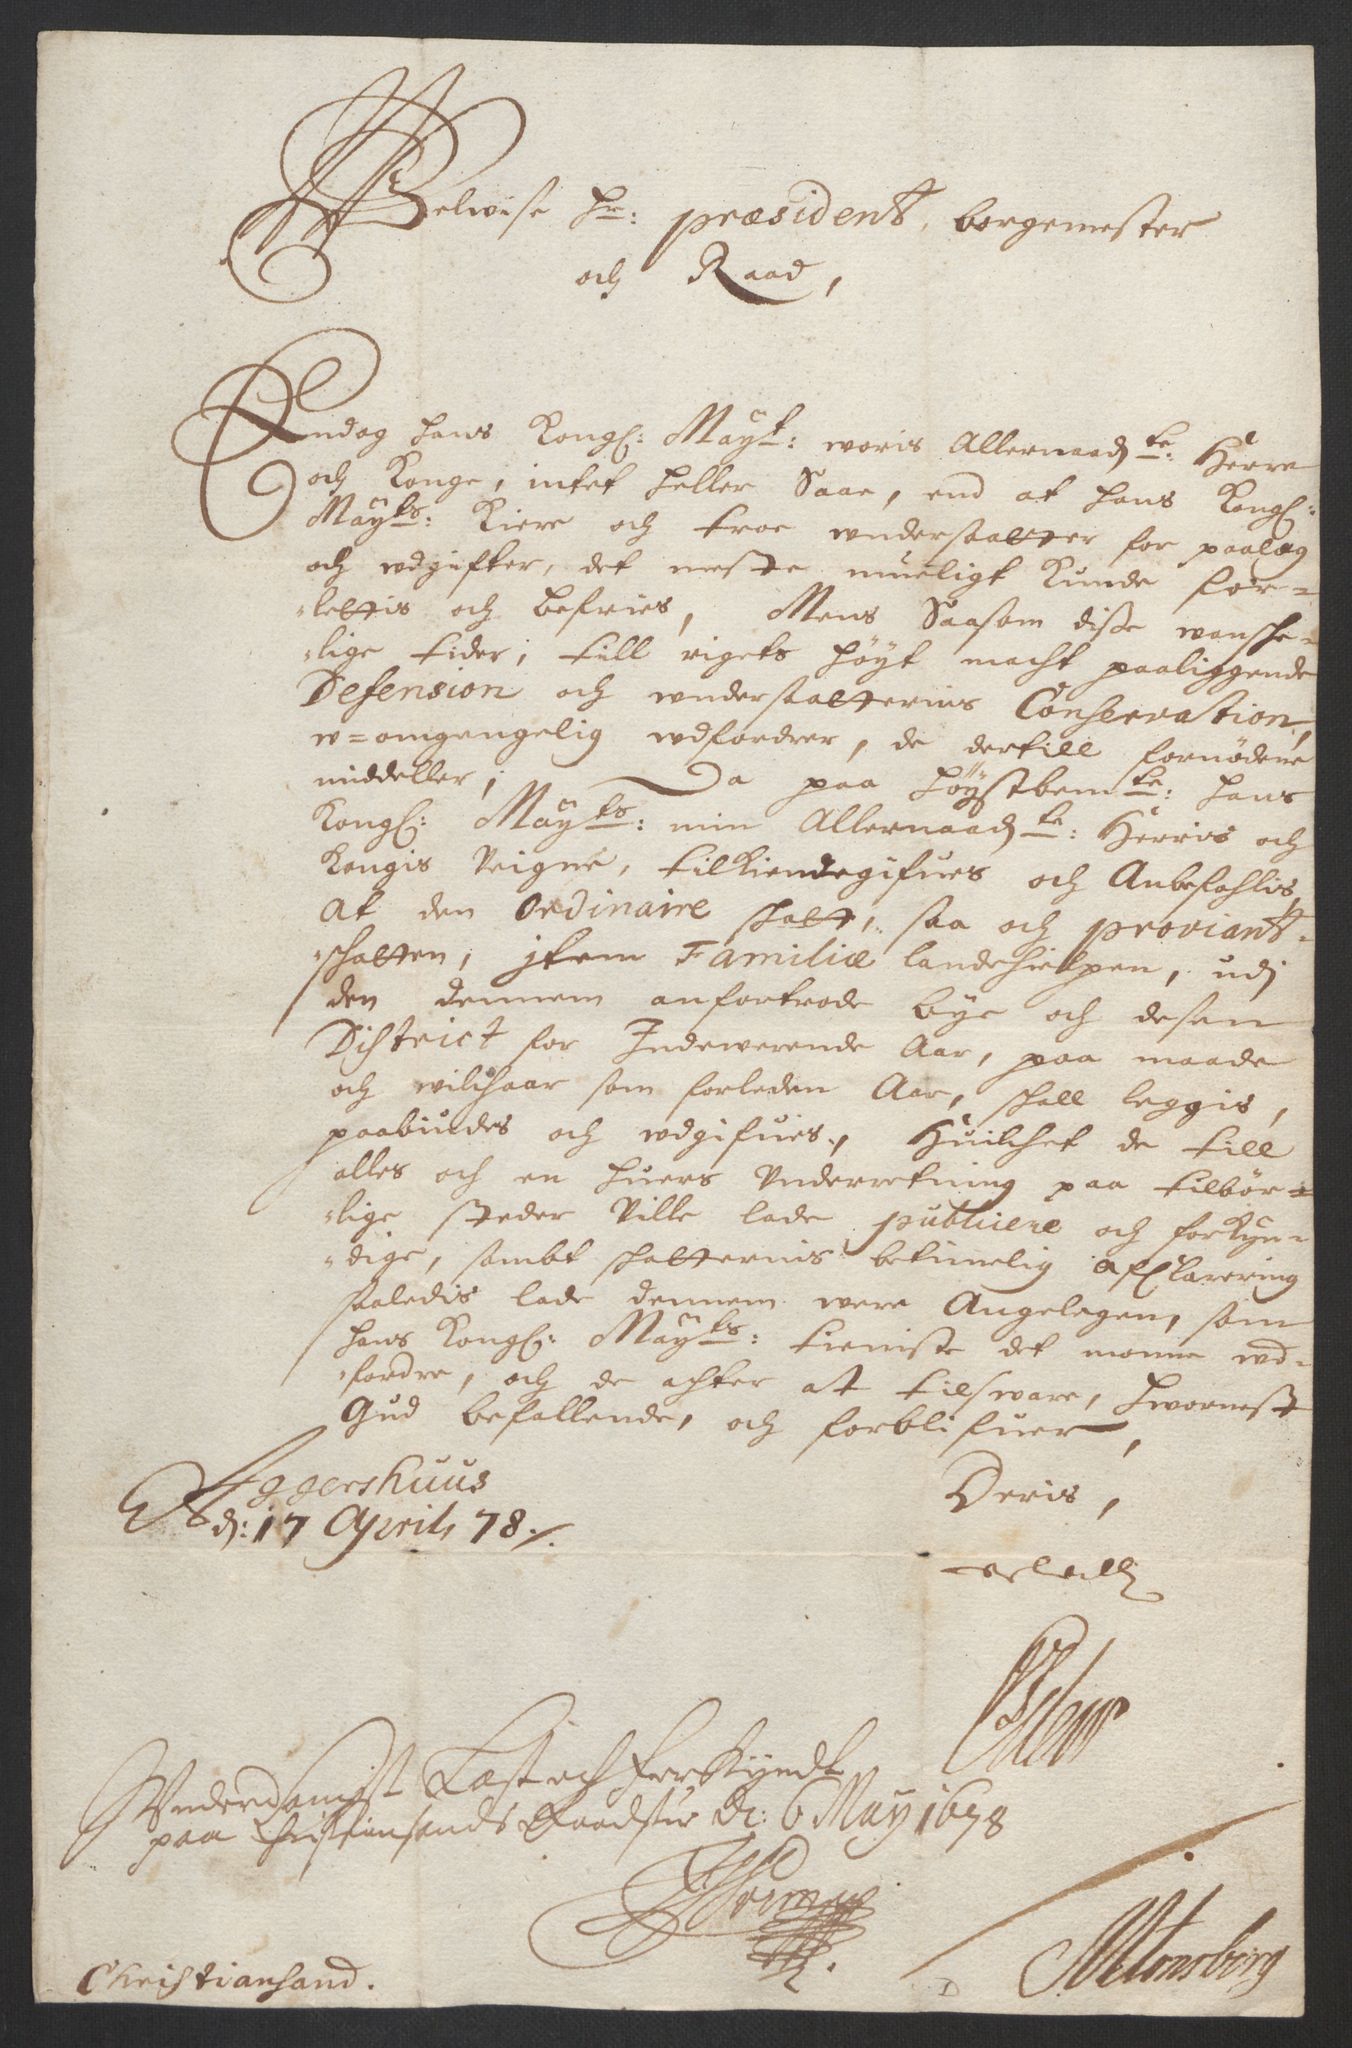 Velwise Hr: præsident, borgemester
och Raad,
Endog hans Kongl: Mayt: woris Allernaadte: Herre
och Konge, intet heller Saae, end at hans Kongl:
Mayts: Kiere och troe wndersaatter for paalæg
och wdgifter, det meste mueligt kunde for=
lettis och befries, Mens Saasom disse wonsche=
lige tider, till rigets höyt macht paaliggende
Defension och wndersaatternis Conservation,
w=omgengelig wdfordrer, de dertill fornödene
middeller; Da paa höystbemte: hans
Kongl: Mayts: min Allernaadte: Herris och
Kongis Veigne, tilkiendegifues och Anbefahlis,
At den Ordinaire skatt, saa och proviant=
schatten, jtem Familiæ landehielpen, udj
den dennem anfortrode bye och desen
District for Indewerende Aar, paa maade
och wilchaar som forleden Aar, schall leggis,
paabiudes och wdgifues, Huilchet de till
alles och en huers Vnderretning paa tilbör=
lige steder Ville lade publicere och forkyn=
dige, sambt schatternis betimelig afclarering
saaledis lade dennem were Angelegen, som
hans Kongl: Mayts: tieniste det monne wd=
fordre, och de achter at tilsware, hwornest
Gud befallende, och forblifuer,
Aggershuus Deris,
d: 17 Aprilj 78./.
Wnderdanigst Læst och forkyndt
paa Christiansands Raadstue D: 6 May 1678
Christiansand. MTonsberg